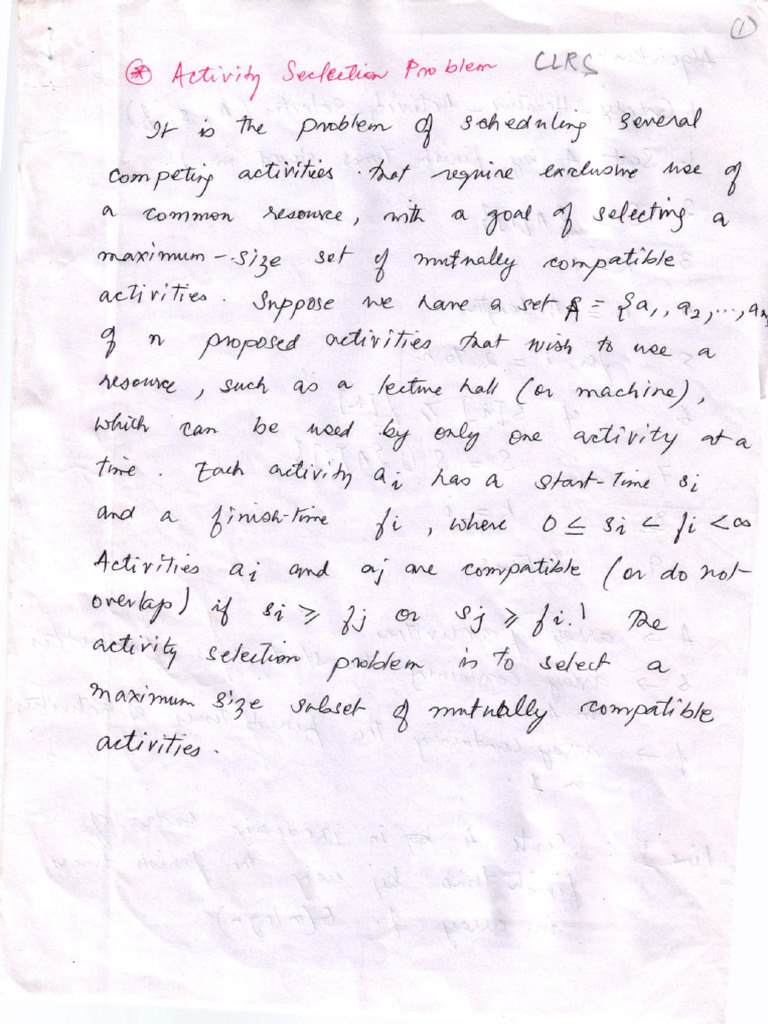 1
* Activity Seclection Problem CLRS
It is the problem of scheduling several
competing activities that require exclusive use of
a common resource, with a goal of selecting a
maximum-size set of mutually compatible
activities. Suppose we have a set A = {a1, a2, ..., an
of n proposed activities that wish to use a
resource, such as a lecture hall (or machine),
which can be used by only one activity at a
time. Each activity ai has a start-time si
and a finish-time fi, where 0 ≤ si < fi < ∞
Activities ai and aj are compatible (or do not
overlap) if si ≥ fj or sj ≥ fi. The
activity selection problem is to select a
maximum size subset of mutually compatible
activities.